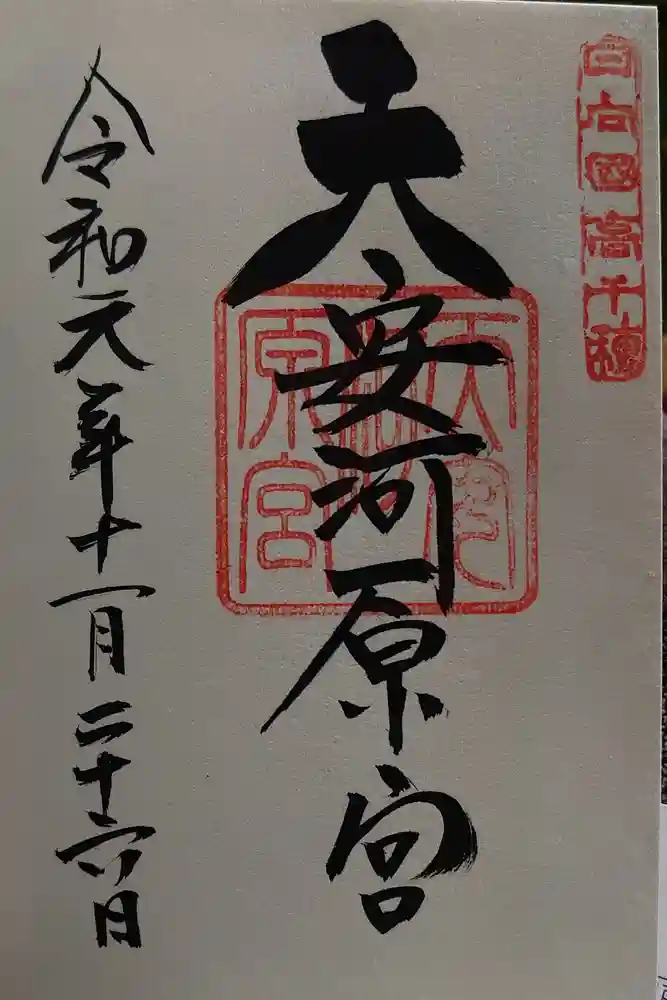 日向國高千穂
天安河原宮
令和元年十一月二十六日